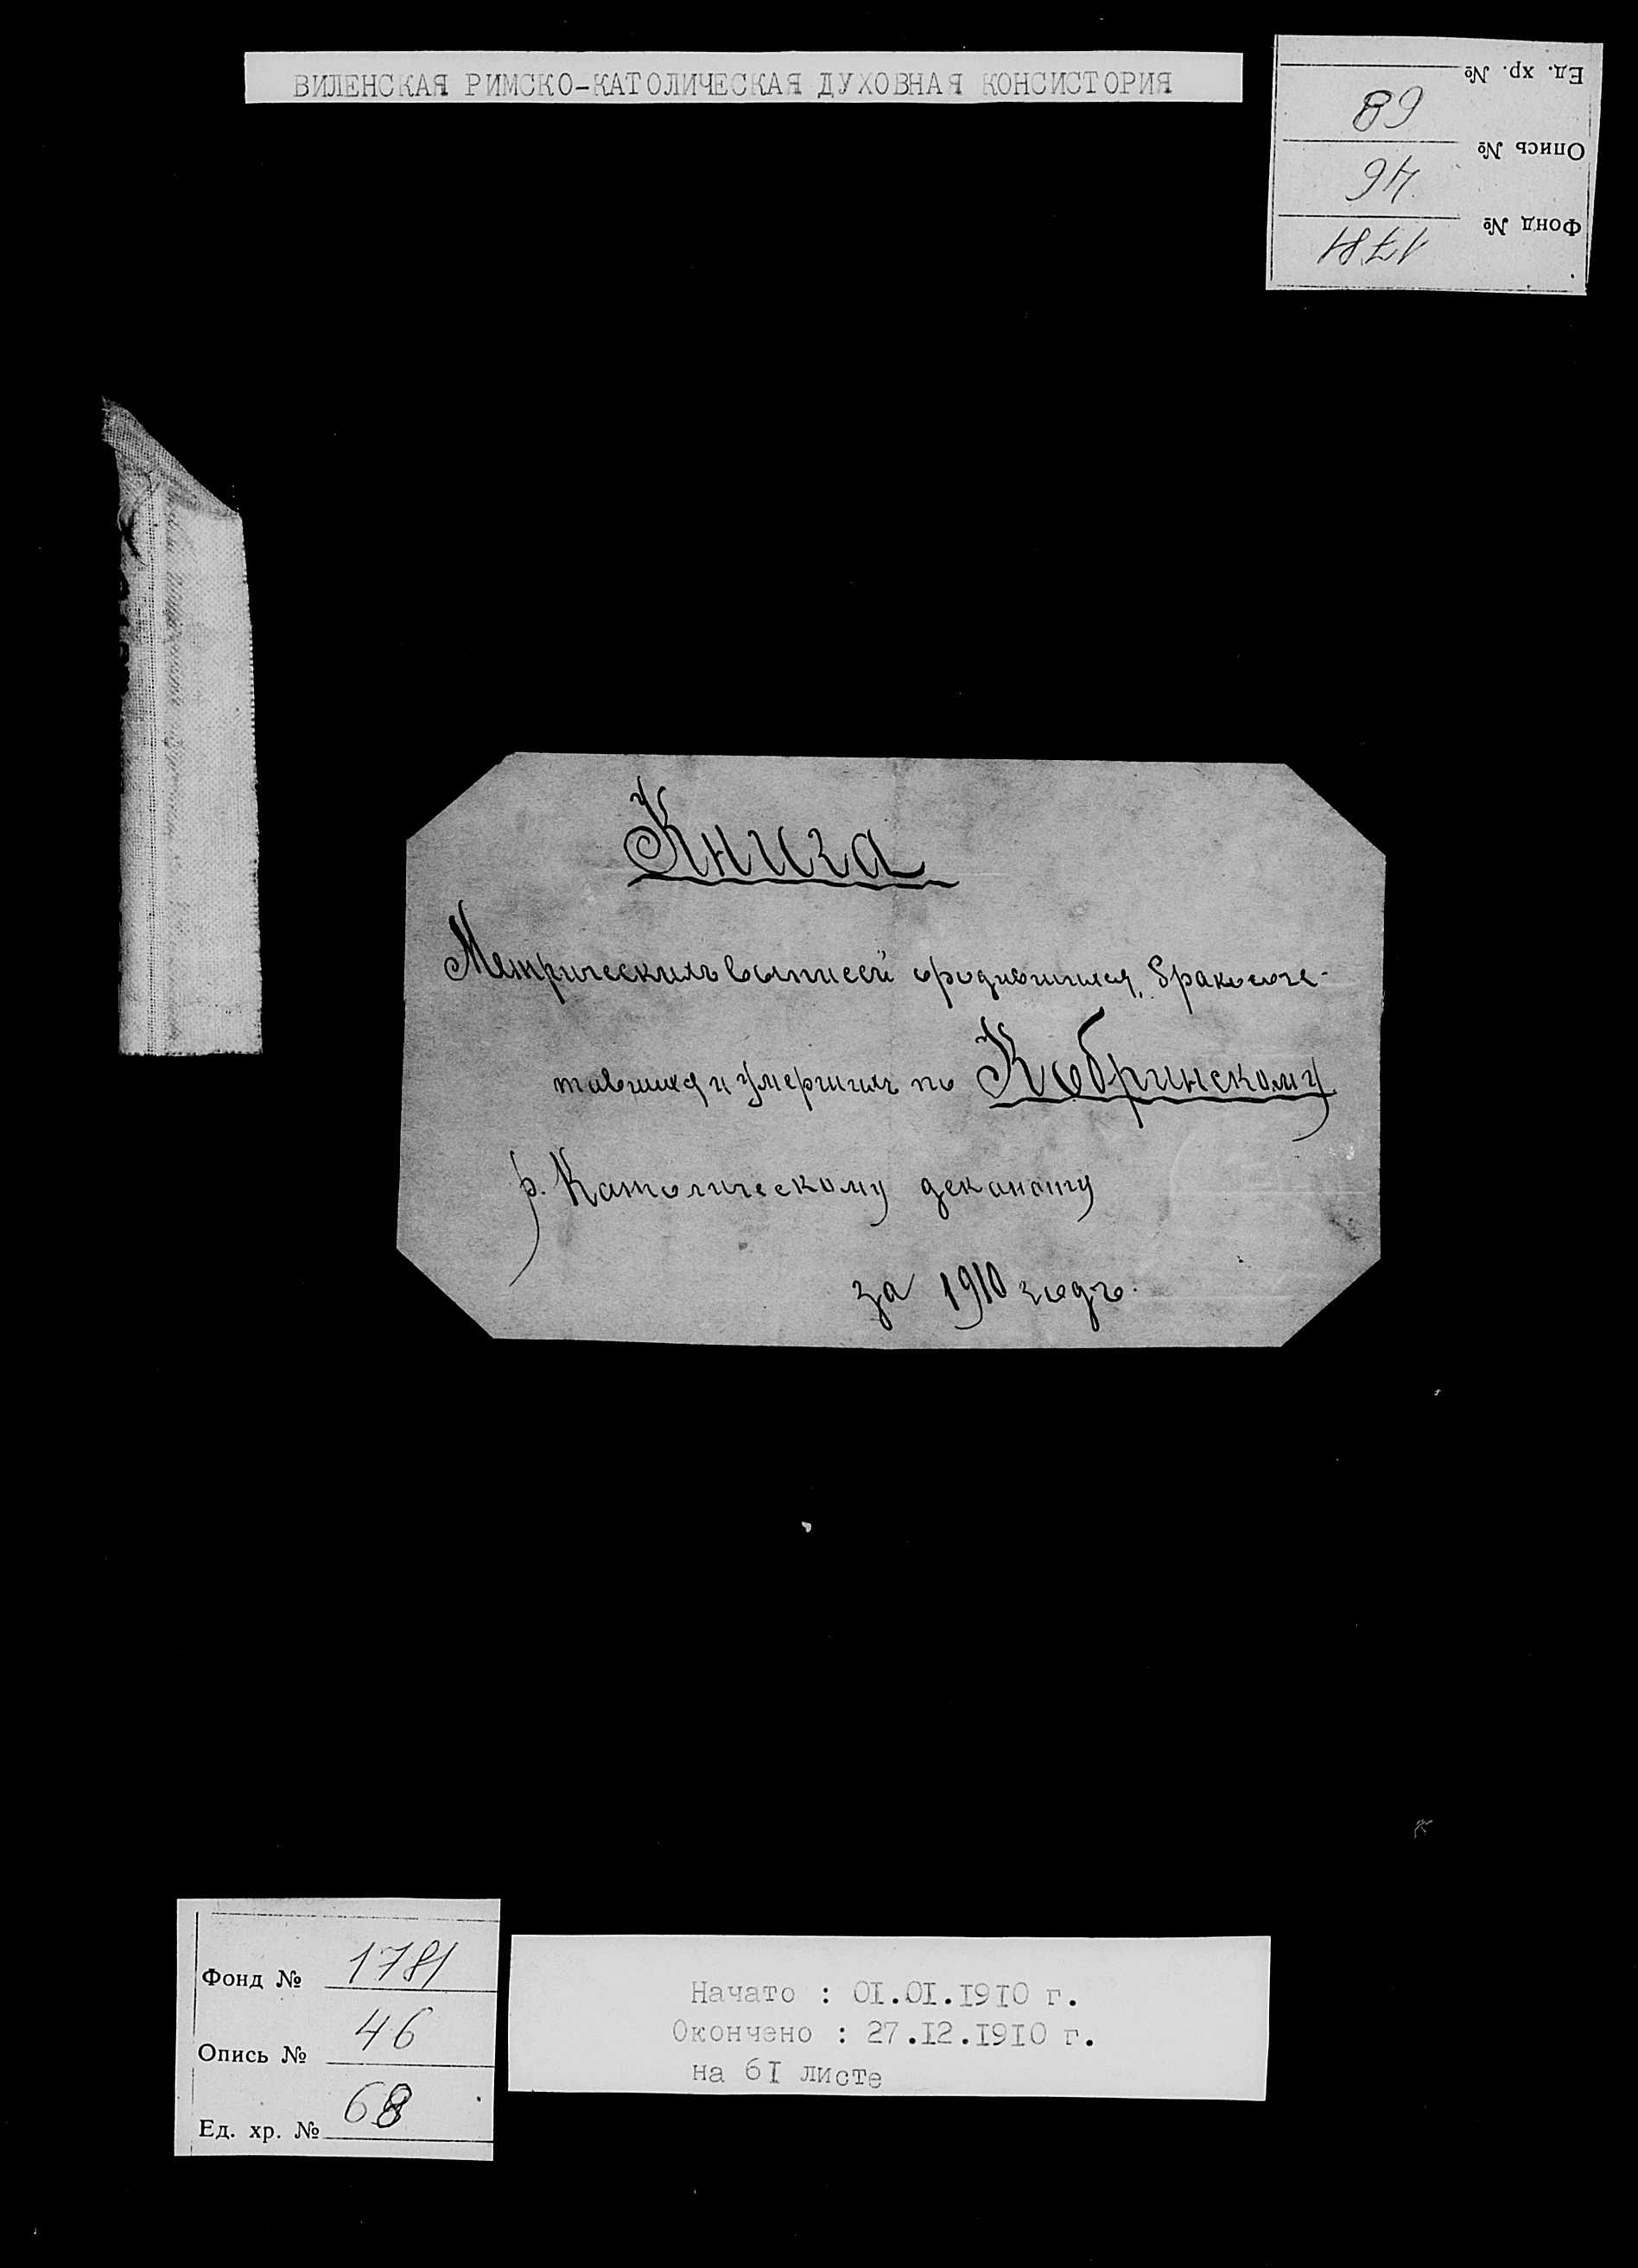 ВИЛЕНСКАЯ РИМСКО-КАТОЛИЧЕСКАЯ ДУХОВНАЯ КОНСИСТОРИЯ
Фонд № 1781
Опись № 46
Ед. хр. № 68
Книга
Метрическихъ выписей о родившихся, бракосоче-
тавшихся и умершихъ по Кобринскому
р. Католическому деканату
за 1910 годъ.
Фонд № 1781
Опись № 46
Ед. хр. № 68
Начато : 01.01.1910 г.
Окончено : 27.12.1910 г.
на 61 листе